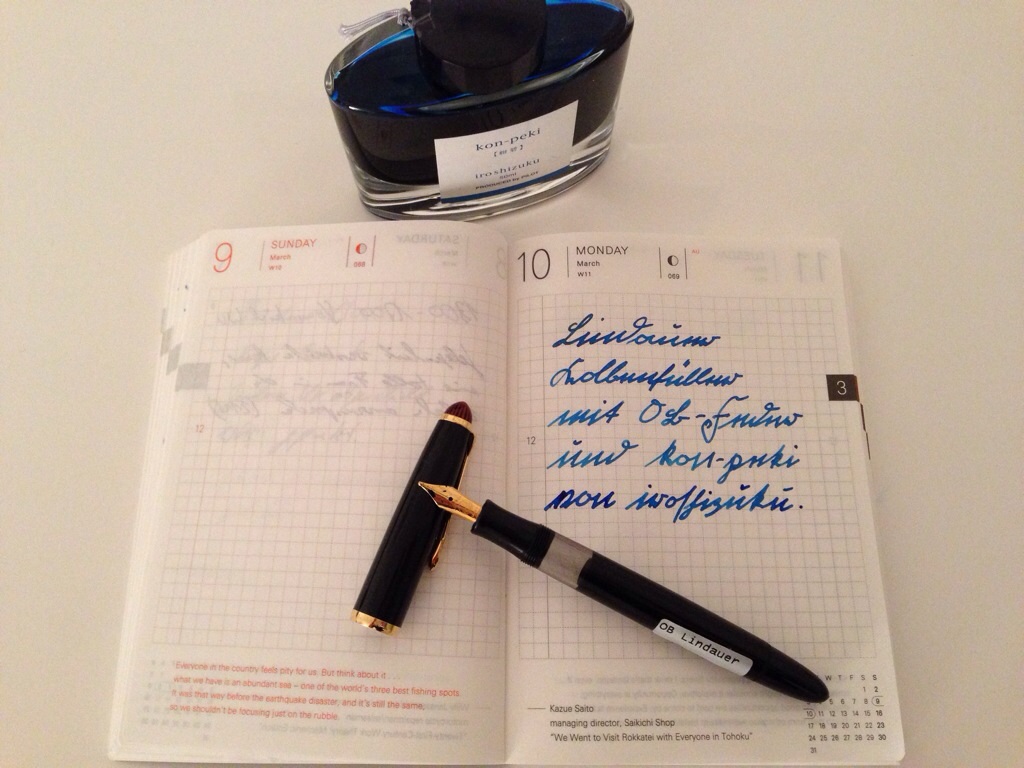 kon-peki
[紺碧]
iroshizuku
50ml
PRODUCED by PILOT
9
SUNDAY
March
W10
068
10
MONDAY
March
W11
069
Lindauer
Kolbenfüller
mit OB-Feder
und kon-peki
von iroshizuku.
3
12
12
OB Lindauer
Everyone in the country feels pity for us. But think about it . . .
what we have is an abundant sea – one of the world's three best fishing spots.
It was that way before the earthquake disaster, and it's still the same,
so we shouldn't be focusing just on the rubble.
Kazue Saito
managing director, Saikichi Shop
"We Went to Visit Rokkatei with Everyone in Tohoku"
W T F S S
1 2
5 6 7 8 9
10 11 12 13 14 15 16
17 18 19 20 21 22 23
24 25 26 27 28 29 30
31